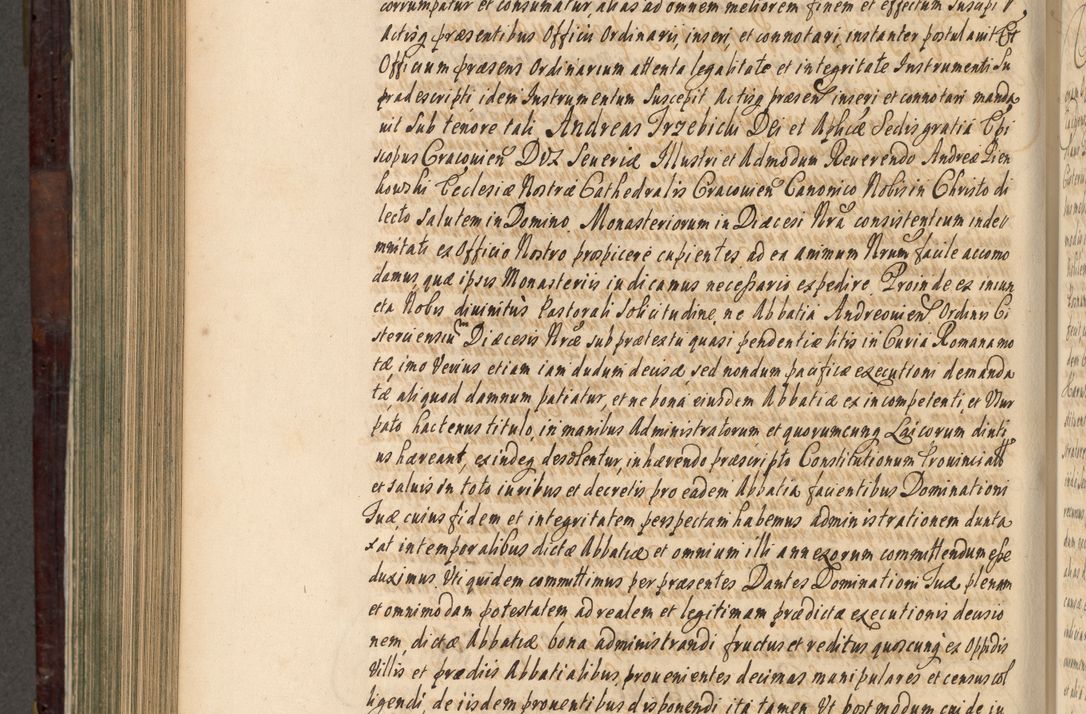 corrumpatur et consumatur, alias ad omnem meliorem finem et effectum suscipi
Actisq præsentibus Officii Ordinarii, inseri, et connotari, instanter postulauit Et
Officium præsens Ordinarium attenta legalitate et integritate Instrumenti Su
pradescripti, idem Instrumentum Suscepit Actisq præsen inseri et connotari manda
uit Sub tenore tali, Andreas Trzebicki Dei et Aplicæ Sedis gratia Epi
scopus Cracouien Dux Seueriæ Illustri et Admodum Reuerendo Andreæ Pien
kowski Ecclesiæ Nostræ Cathedralis Cracouien Canonico Nobis in Christo di
lecto salutem in Domino. Monasteriorum in Diæcesi Nra consistentium inde
mnitati ex Officio Nostro prospicere cupientes ad ea animum Nrum facile accomo
damus, quæ ipsis Monasteriis iudicamus necessario expedire. Proinde ex iniun
cta Nobis diuinitus Pastorali Solicitudine, ne Abbatia Andreouien Ordinis Ci
sterciensium Diæcesis Nræ sub prætextu quasi pendentiæ litis in Curia Romana mo
tæ imo Verius etiam iam dudum decisæ, sed nondum pacificæ executioni demanda
tæ aliquod damnum patiatur, et ne bona eiusdem Abbatiæ ex incompetenti, et Usur
pato hactenus titulo, in manibus Administratorum et quorumcunq Laicorum diuti
us hæreant, exindeq desolentur, inhærendo præscripto Constitutionum Prouinciali
et saluis in toto iuribus et decretis pro eadem Abbatia fauentibus Dominationi
Tuæ cuius fidem et integritatem perspectam habemus administrationem dunta
xat in temporalibus dictæ Abbatiæ, et omnium illi annexorum committendum esse
duximus Uti quidem committimus per præsentes Dantes Dominationi Tuæ plenam
et omnimodam potestatem ad realem et legitimam prædictæ executionis decisio
nem, dictæ Abbatiæ bona administrandi fructus et reditus quoscunq ex Oppidis
Villis et prædiis Abbatialibus prouenientes decimas manipulares et census col
ligendi, de iisdem prouentibus disponendi, ita tamen Ut postmodum cui de iu